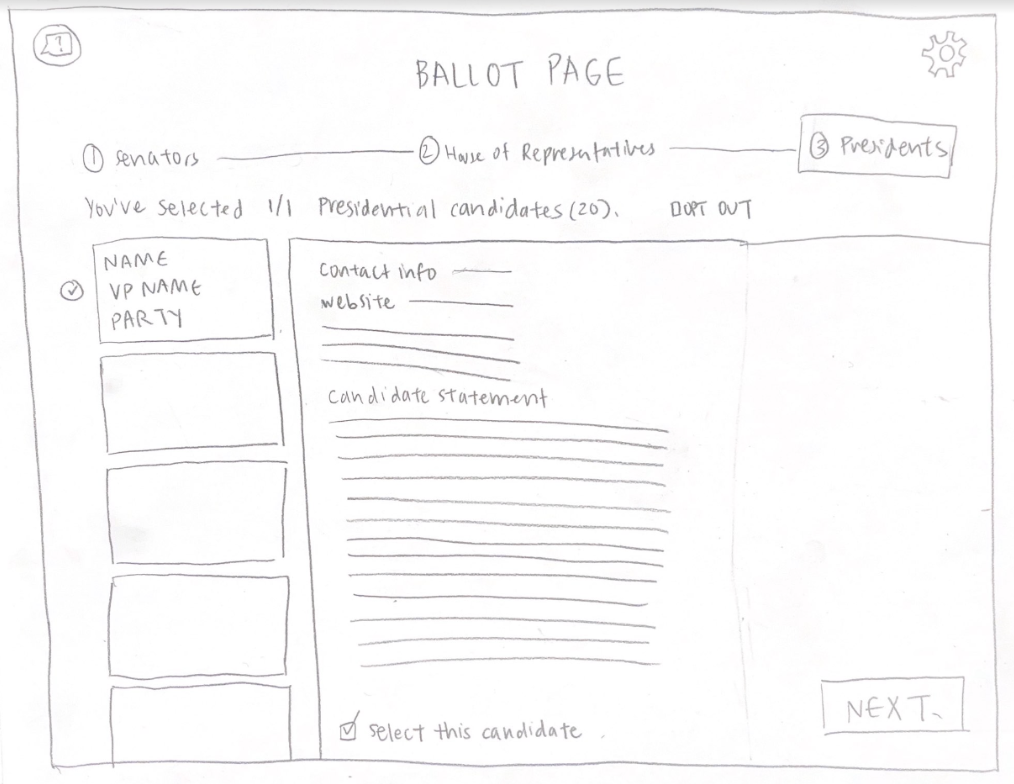 ?
BALLOT PAGE
1 Senators 2 House of Representatives 3 Presidents
You've selected 1/1 Presidential candidates (20). OPT OUT
NAME
VP NAME
PARTY
contact info
website
candidate statement
select this candidate
NEXT